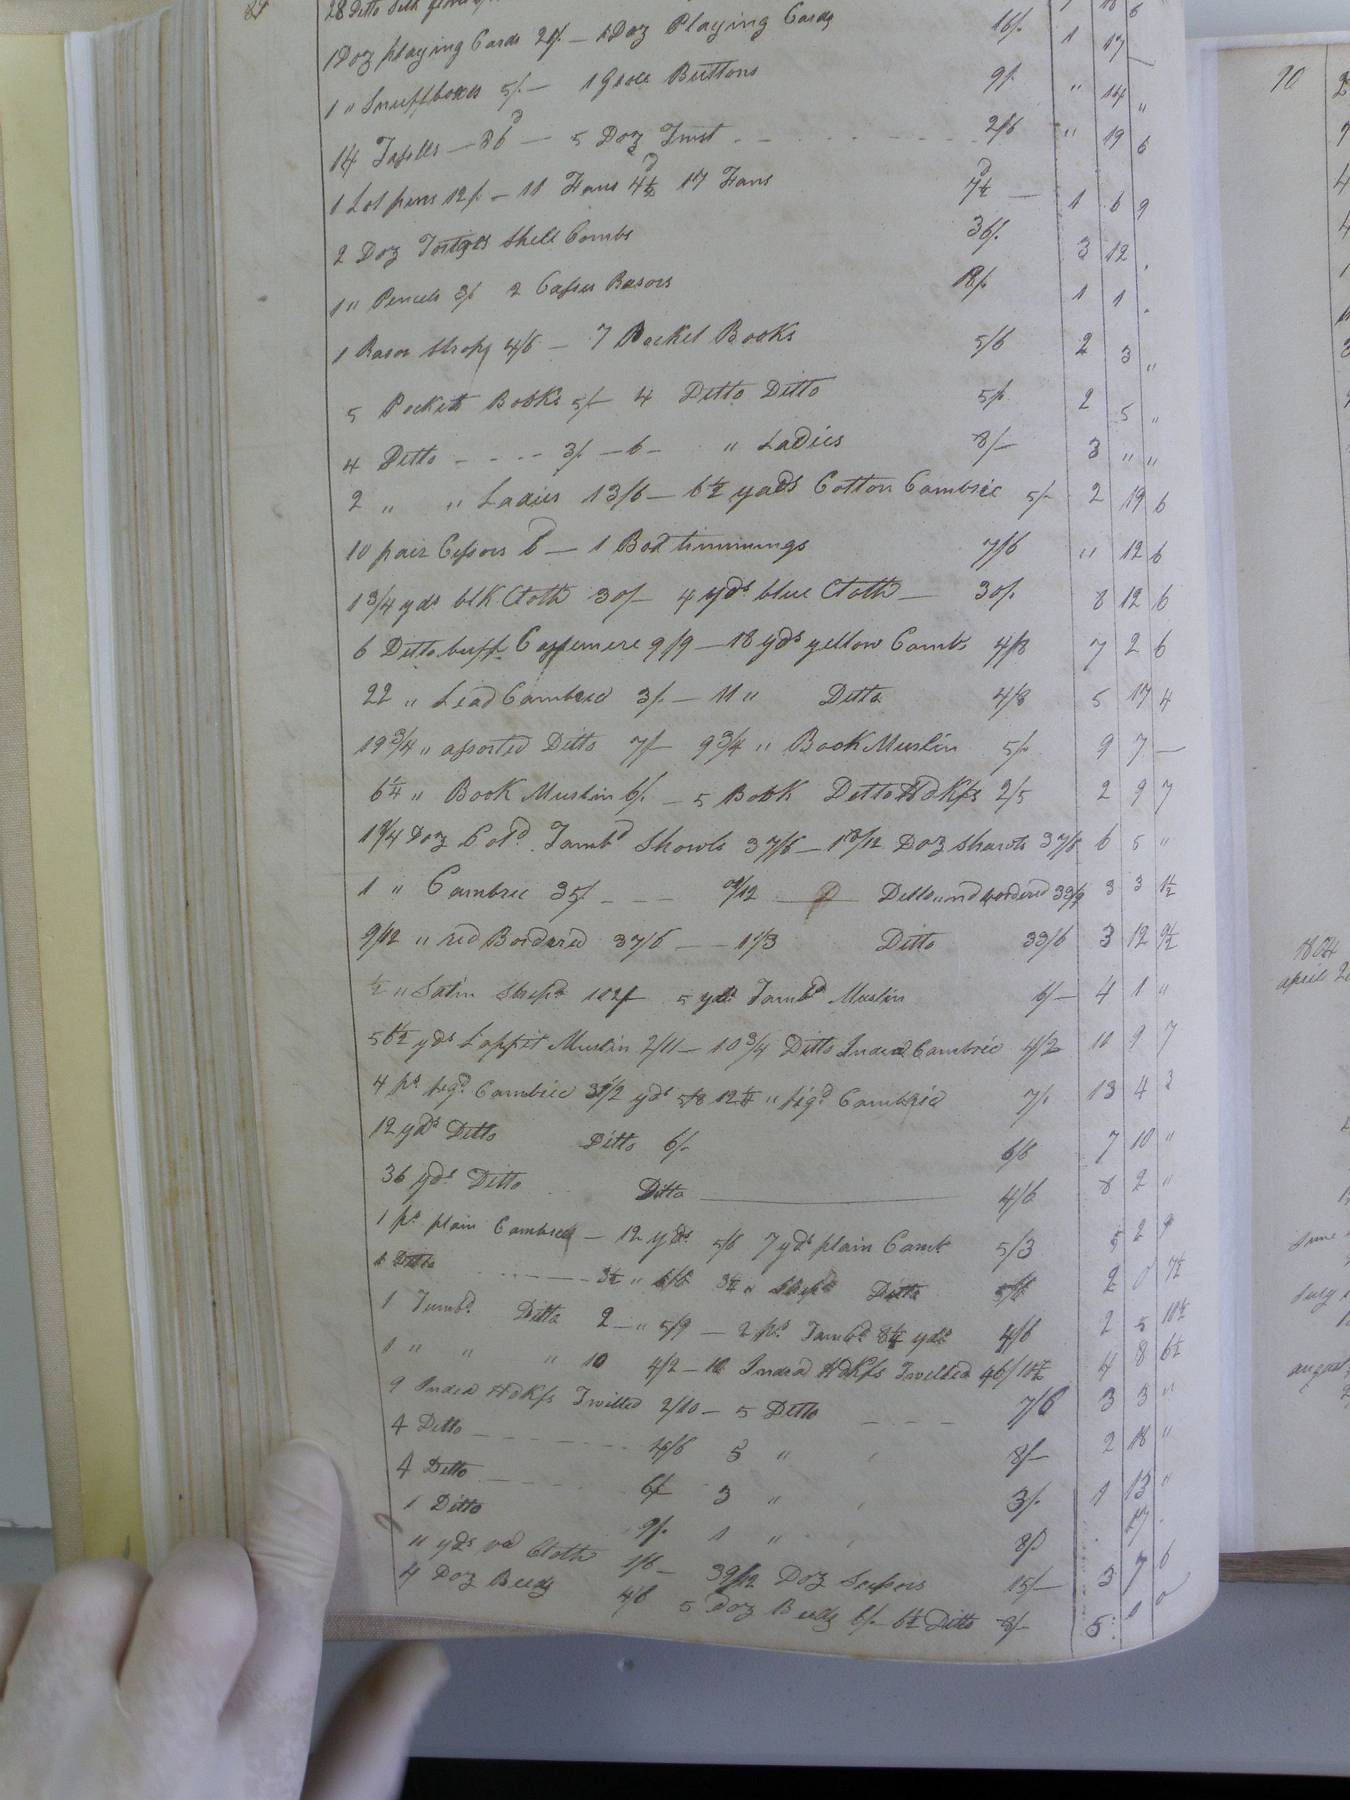 28 Ditto Silk
1 Doz playing Cards 21/. — 1 Doz Playing Cards 16/. 1 17 —
1 " Snuffboxes 5/. — 1 Groce Buttons 9/. " 14 "
14 Tassells — 36d — 5 Doz Twist 2/6 " 19 6
1 Lot pins 12/. — 11 Fans 4½d 17 Fans 7½d — 1 6 9
2 Doz Shell Combs 36/. 3 12 .
1 " Pencels 3/. 2 Casses Rasors 18/. 1 1 .
1 Rasor Strop 4/6 — 7 Pocket Books 5/6 2 3 "
5 Pockett Books 5/— 4 Ditto Ditto 5/. 2 5 "
4 Ditto - - - - 3/. — 6 — " Ladies 8/— 3 " "
2 " " Ladies 13/6 — 6½ yads Cotton Cambric 5/— 2 19 6
10 pair Cissors 6d — 1 Box timmings 7/6 " 12 6
1¾ yds blk Cloth 30/— 4 yds blue Cloth — 30/. 8 12 6
6 Ditto buff Cassemere 9/9 — 18 yds yellow Camb 4/8 7 2 6
22 " Lead Cambric 3/. — 11 " Ditto 4/8 5 17 4
19¾ " assorted Ditto 7/— 9¾ " Book Muslin 5/. 9 7 —
6¼ " Book Muslin 6/. — 5 Book Ditto Hdkfs 2/5 2 9 7
Doz Cold Tambd Shawls 37/6 — Doz Shawls 37/6 6 5 "
1 " Cambric 35/. - - - 9/12 — Ditto red bordered 33/9 3 3 1½
9/12 " red Bordered 37/6 — - 1⅓ Ditto 33/6 3 12 9½
½ " Satin Stripd 102/— 5 yds Tambd Muslin 6/— 4 1 "
56½ yds Lappit Muslin 2/11 — 10¾ Ditto India Cambric 4/2 10 9 7
4 ps figd Cambric yds 5/8 12¼ " figd Cambric 7/. 13 4 2
12 yds Ditto Ditto 6/. 6/6 7 10 "
36 yds Ditto Ditto 4/6 8 2 "
1 ps plain Cambric — 12 yds 5/6 7 yds plain Camb 5/3 5 2 9
1 Ditto - - - - 3½ " 3½ " Ditto 2 0 7½
1 Tambd Ditto 2 — " 5/9 — 2 ps Tambd 8¼ yds 4/6 2 5 10½
1 " " " 10 4/2 — India Hdkfs Twilled 46/10½ 4 8 6½
9 India Hdkfs Twilled 2/10 — 5 Ditto - - - 7/6 3 3 "
4 Ditto - - - - 4/6 5 " 8/— 2 18 "
4 Ditto - - - - 6/— 3 " 3/. 1 13 "
1 Ditto 9/. 1 " 8/ . 17 .
11 yds red Cloth 1/6 — 39/12 Doz Scissors 15/— 3 7 6
4 Doz Beeds 4/6 5 Doz Beeds 6/. 6½ Ditto 8/— 5 1 0
70
1804
april
June
July
august